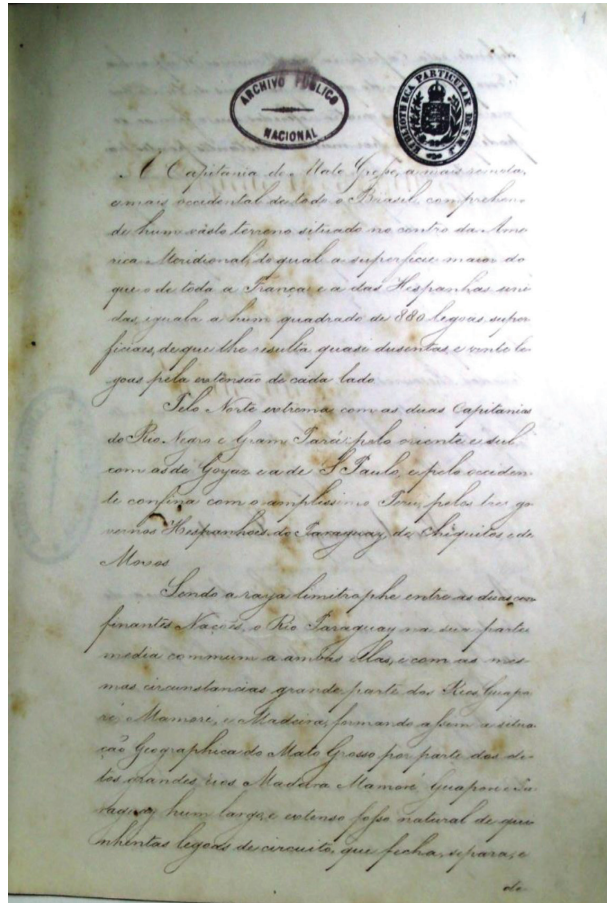 1
ARCHIVO PUBLICO
NACIONAL
BIBLIOTHECA PARTICULAR DE S
A Capitania de Mato Grosso, a mais remota,
e mais occidental de todo o Brasil, comprehen
de hum vásto terreno situado no centro da Ame
rica Meridional, do qual a superficie maior do
que o de toda a França e a das Hespanhas uni
das, eguala a hum quadrado de 880 legoas super
ficiaes, de que lhe resulta quase dusentas, e vinte le
goas pela extensão de cada lado
Pelo Norte extrema com as duas Capitanias
do Rio Negro e Gram Pará: pelo oriente e sul
com as de Goyaz e a de S. Paulo, e pelo occiden
te confina com o amplissimo Peru, pelos tres go
vernos Hespanhóes do Paraguay, de Chiquitos e de
Moxos
Sendo a raya limitrophe entre as duas con
finantes Nações, o Rio Paraguay na sua parte
media commum a ambas ellas, e com as mes
mas circunstancias grande parte dos Rios Guapo
ré, Mamoré, e Madeira, formando assim a situa
ção Geographica do Mato Grosso por parte dos di
tos grandes rios Madeira Mamoré Guaporé e Pa
raguay hum largo, e extenso fosso natural de qui
nhentas legoas de circuito, que fecha, separa, e